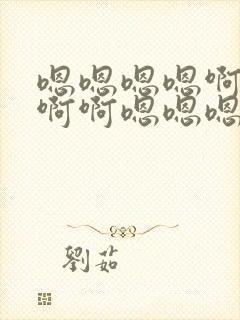 嗯嗯嗯嗯啊
啊啊嗯嗯嗯
劉茹